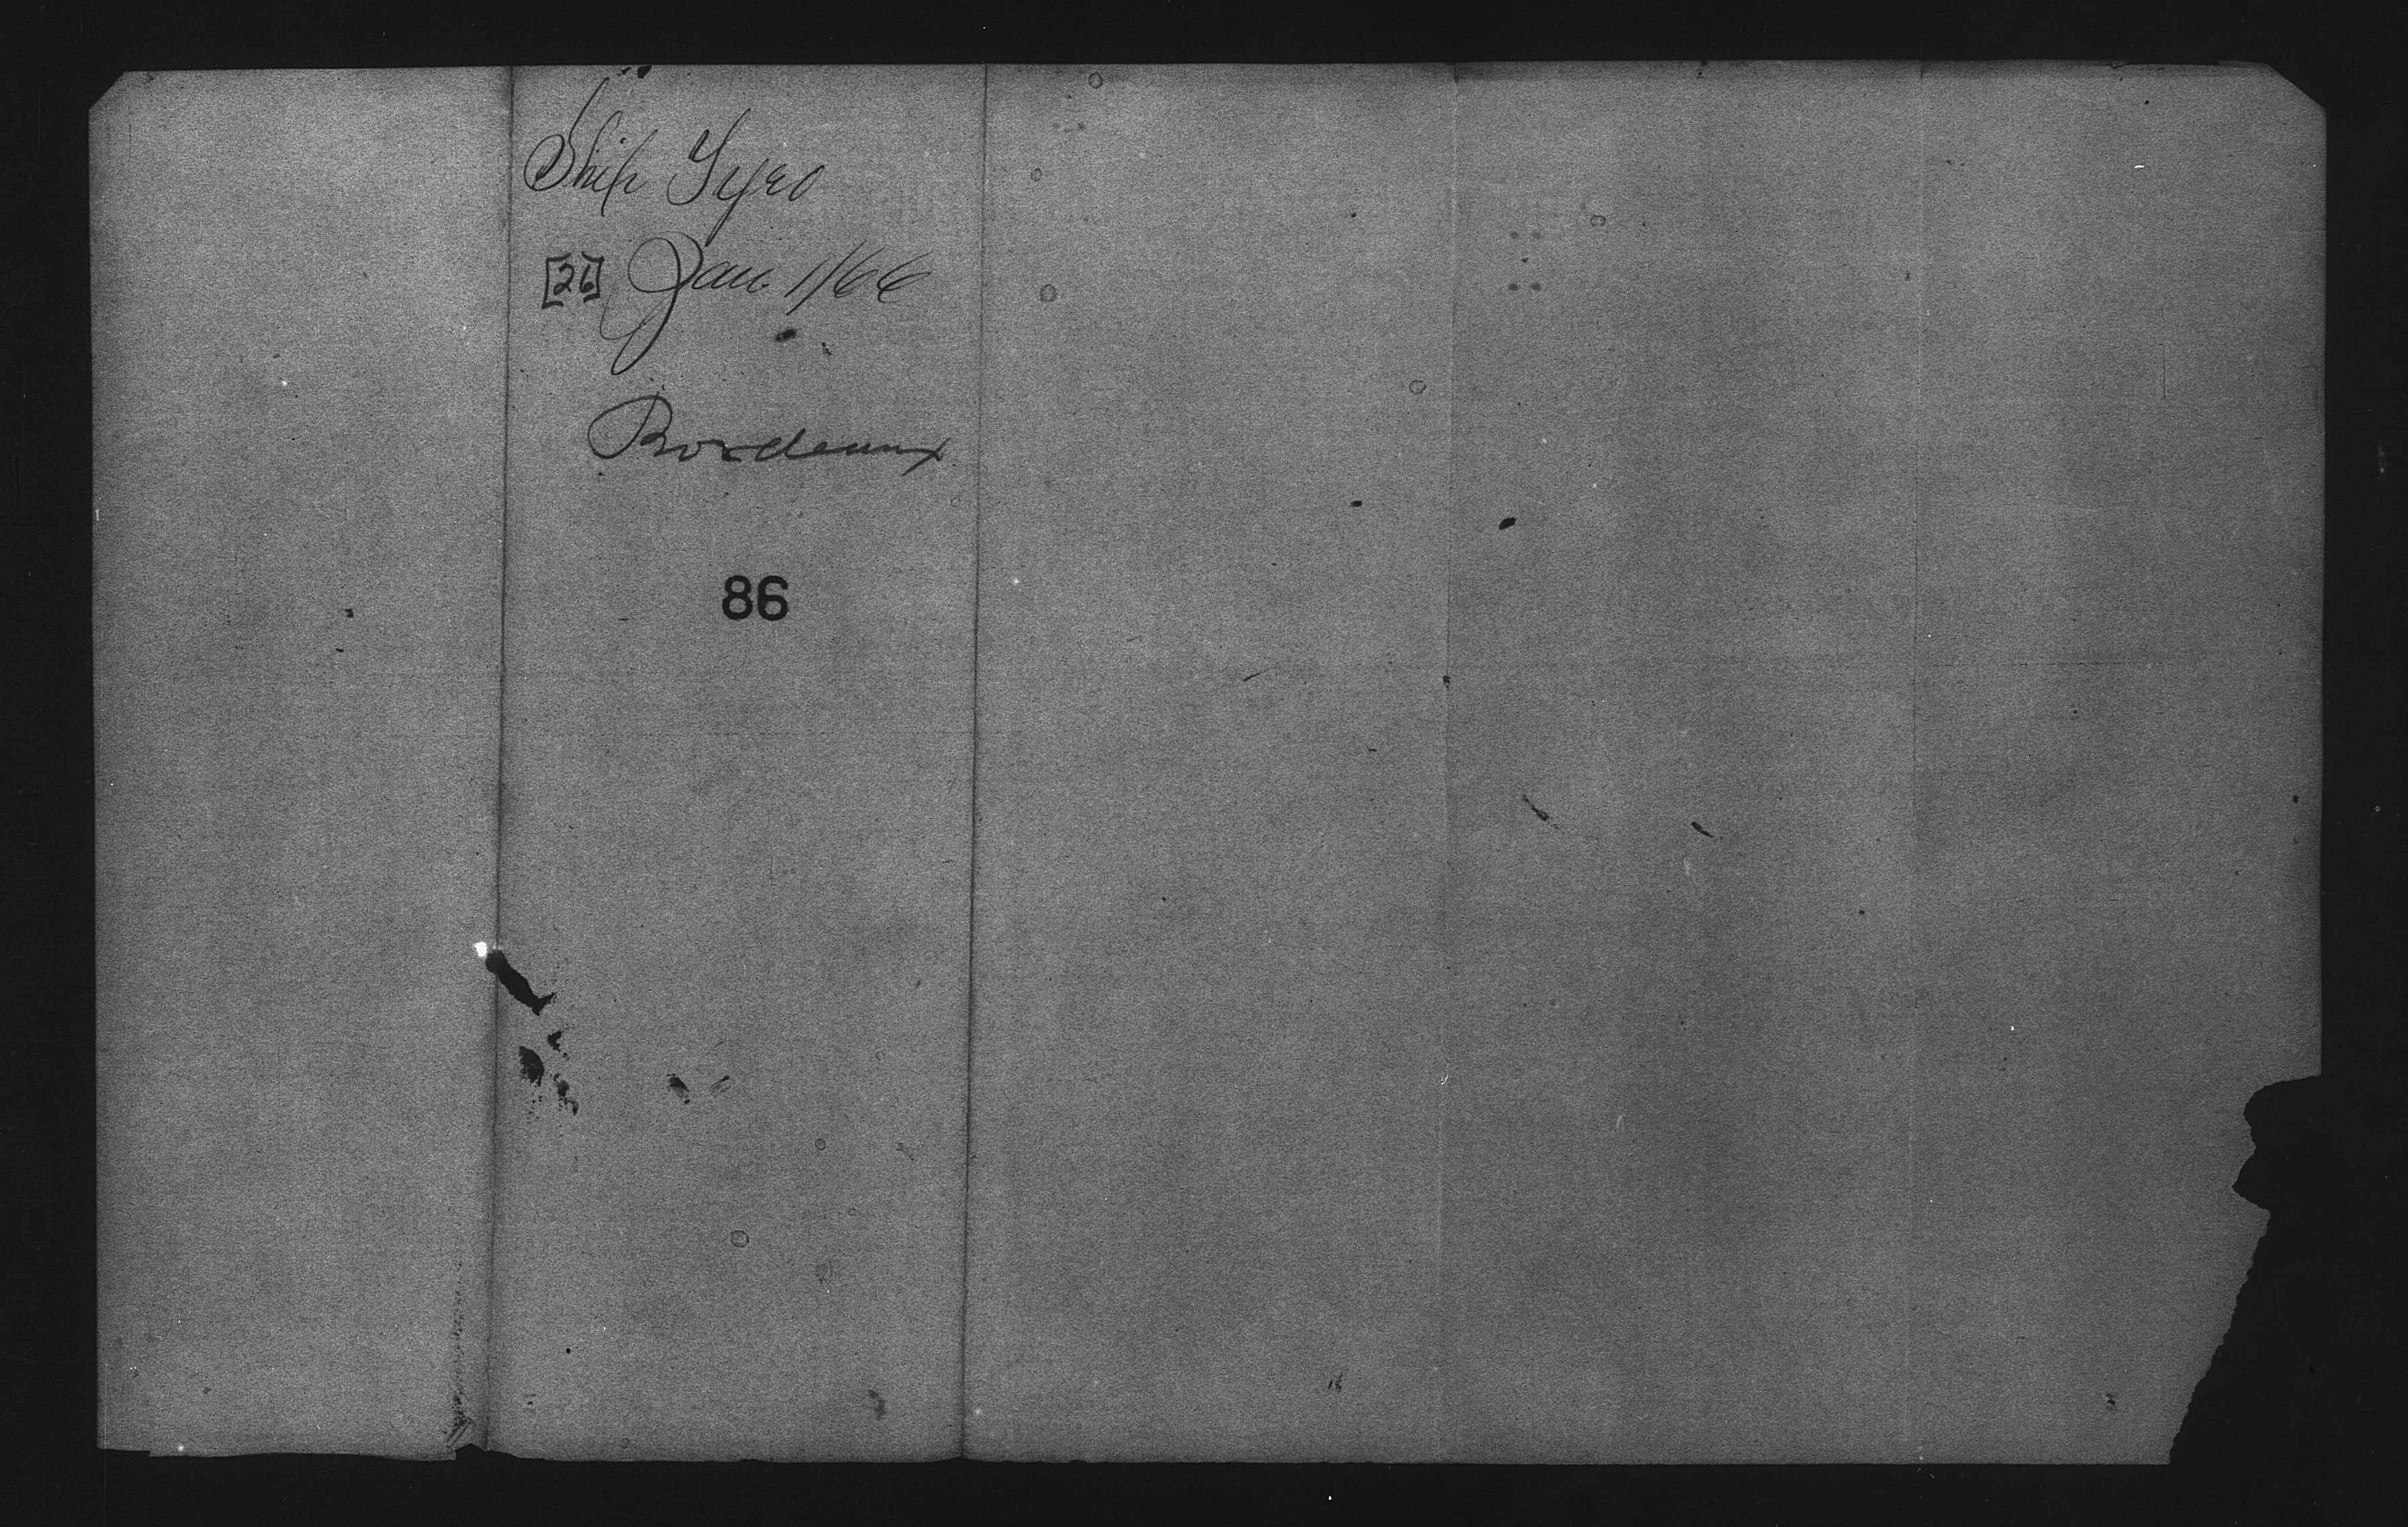 Ship Tyro
[26] Jan. 1/66
Bordeaux
86